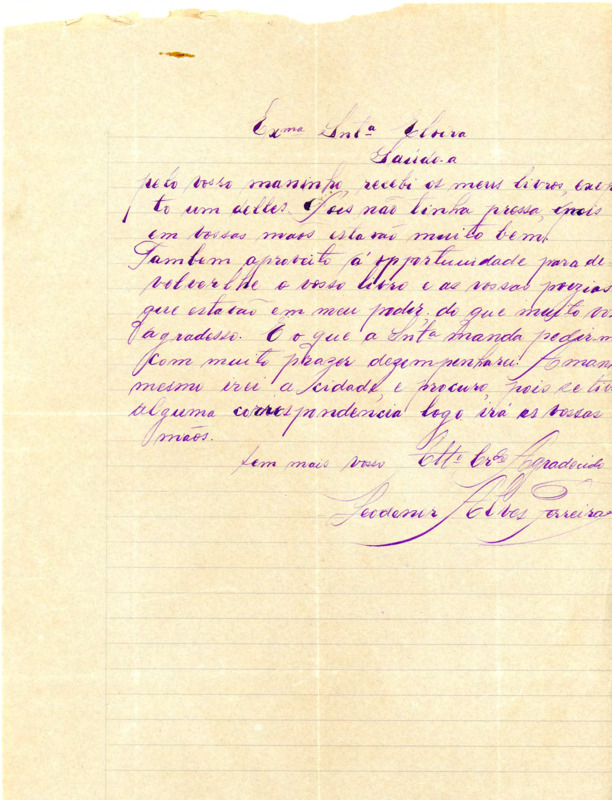 Exma Snta Eloira
Saúdo-a
pelo vosso maninho, recebi os meus livros, exen
to um delles. Pois não tinha pressa, pois
em vossas maos estavão muito bem.
Tambem aproveito á opportunidade para de
volverlhe o vosso livro e as vossas poezias
que estavão em meu poder, do que muito vos
agradesso. E o que a Snta manda pedir-m
com muito prazer dezempenharei. Aman
mesmo irei a cidade, e procuro, pois se tiv
alguma correspondencia logo irá as vossas
mãos.
Sem mais vosso Atto Crdo Agradecido
Leodemir Alves Ferreira